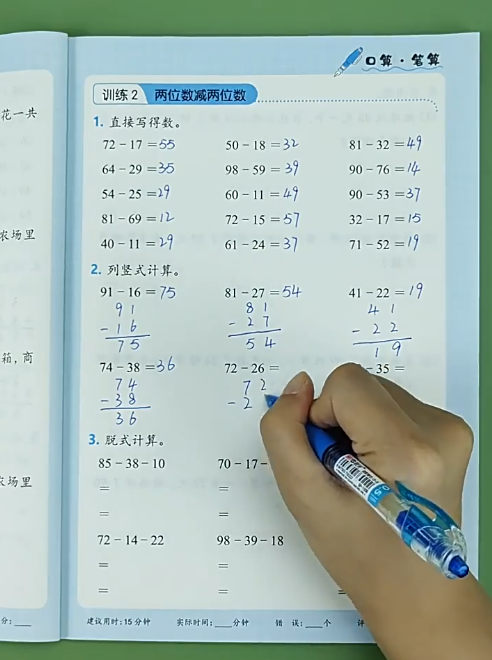 花一共
农场里
箱,商
农场里
分:
口算·笔算
训练2 两位数减两位数
1. 直接写得数。
72-17=55 50-18=32 81-32=49
64-29=35 98-59=39 90-76=14
54-25=29 60-11=49 90-53=37
81-69=12 72-15=57 32-17=15
40-11=29 61-24=37 71-52=19
2. 列竖式计算。
91-16=75 81-27=54 41-22=19
91 81 41
-16 -27 -22
75 54 19
74-38=36 72-26= -35=
74 72
-38 -2
36
3. 脱式计算。
85-38-10 70-17-
= =
= =
72-14-22 98-39-18
= =
= =
建议用时:15分钟 实际时间:____分钟 错误:____个 评